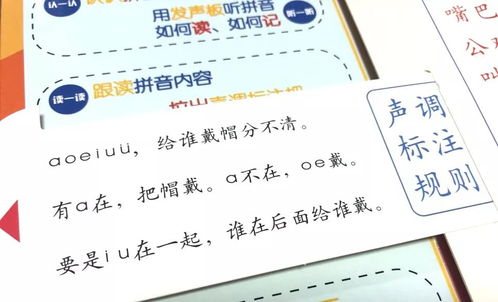 认一认
用发声板听拼音
如何读、如何记
听一听
读一读
跟读拼音内容
aoeiuü，给谁戴帽分不清。
有a在，把帽戴。a不在，oe戴。
要是iu在一起，谁在后面给谁戴。
声调
标注
规则
嘴巴
公